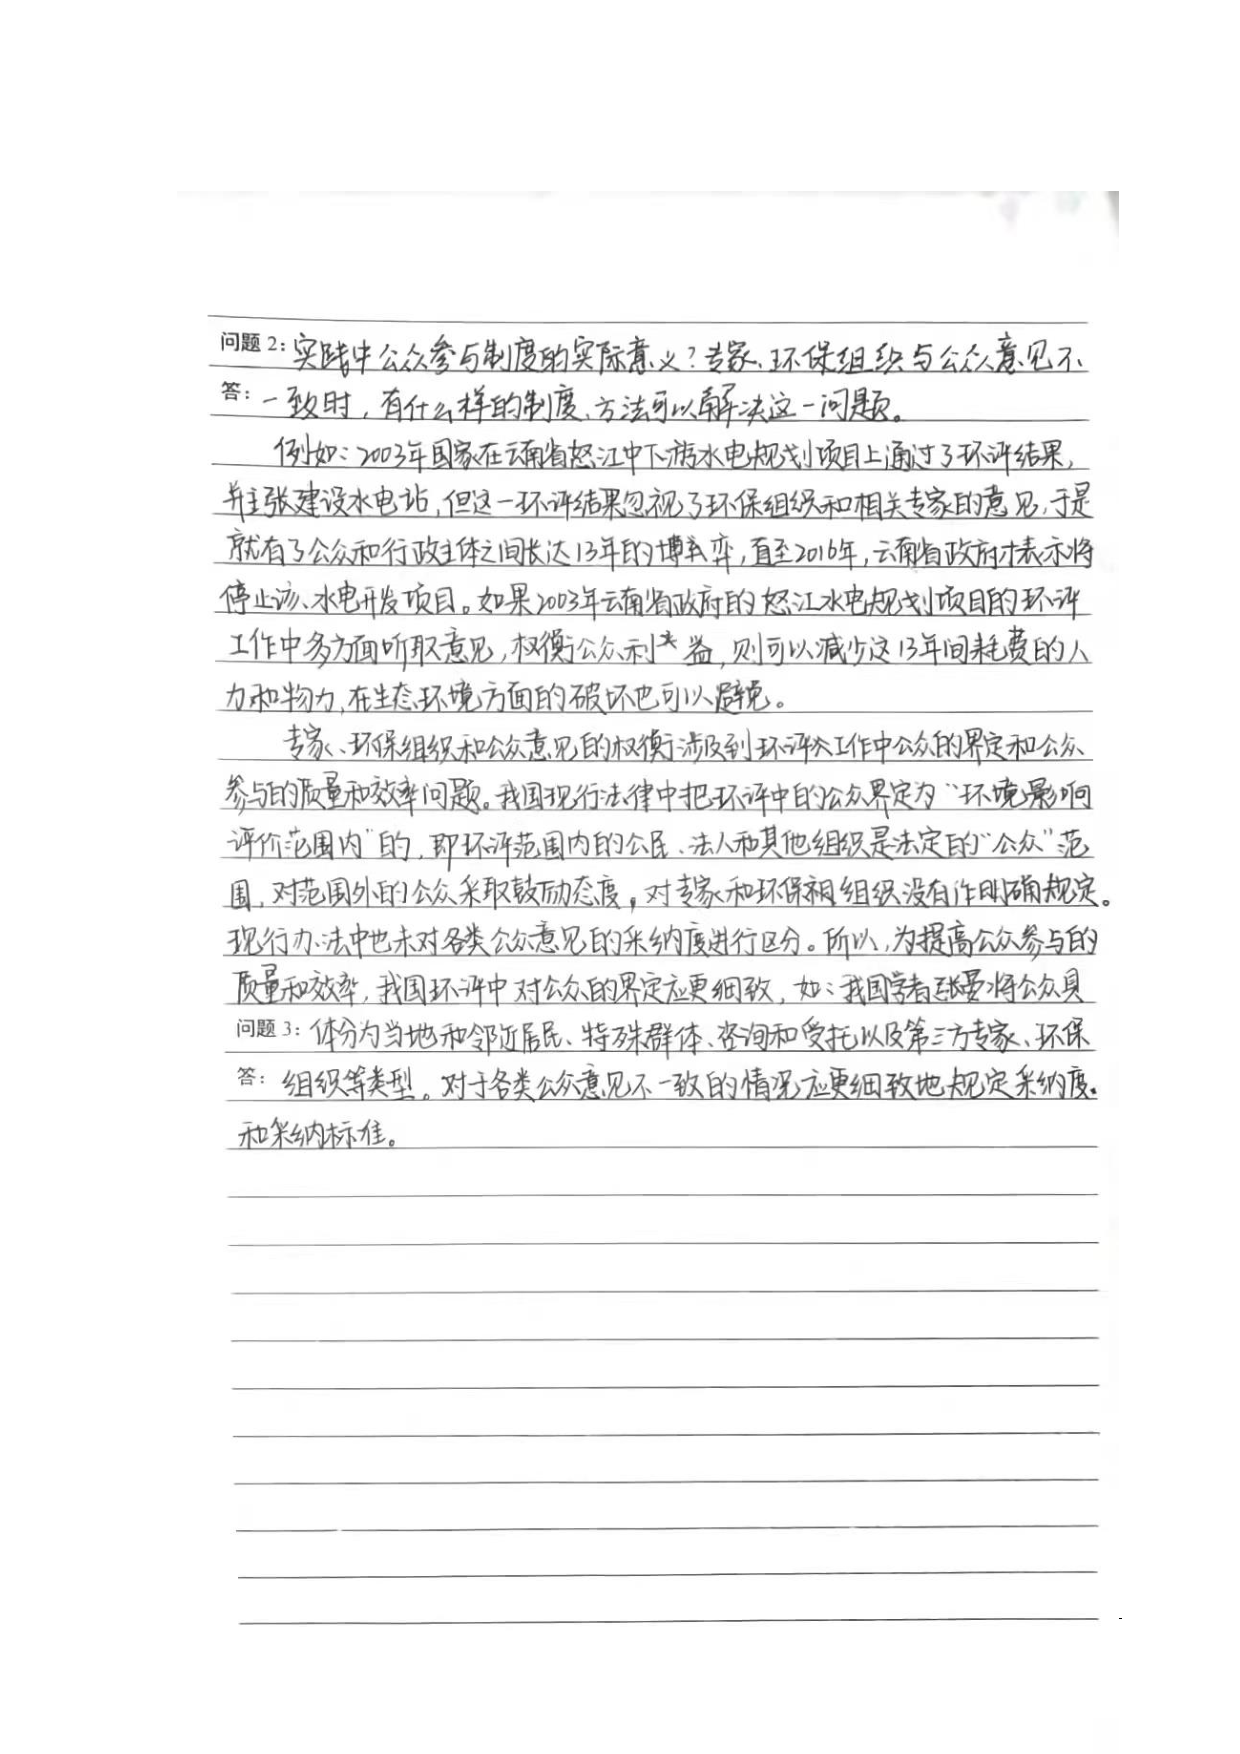 问题 2: 实践中公众参与制度的实际意义？专家、环保组织与公众意见不
答: 一致时，有什么样的制度、方法可以解决这一问题。
例如：2003年国家在云南省怒江中下游水电规划项目上通过了环评结果，
并主张建设水电站，但这一环评结果忽视了环保组织和相关专家的意见，于是
就有了公众和行政主体之间长达13年的博弈，直至2016年，云南省政府才表示将
停止该水电开发项目。如果2003年云南省政府的怒江水电规划项目的环评
工作中多方面听取意见，权衡公众利益，则可以减少这13年间耗费的人
力和物力，在生态环境方面的破坏也可以避免。
专家、环保组织和公众意见的权衡涉及到环评工作中公众的界定和公众
参与的质量和效率问题。我国现行法律中把环评中的公众界定为“环境影响
评价范围内”的，即环评范围内的公民、法人和其他组织是法定的“公众”范
围，对范围外的公众采取鼓励态度，对专家和环保组织没有作明确规定。
现行办法中也未对各类公众意见的采纳度进行区分。所以，为提高公众参与的
质量和效率，我国环评中对公众的界定应更细致，如：我国学者张晏将公众具
问题 3: 体分为当地和邻近居民、特殊群体、咨询和受托以及第三方专家、环保
答: 组织等类型。对于各类公众意见不一致的情况应更细致地规定采纳度
和采纳标准。